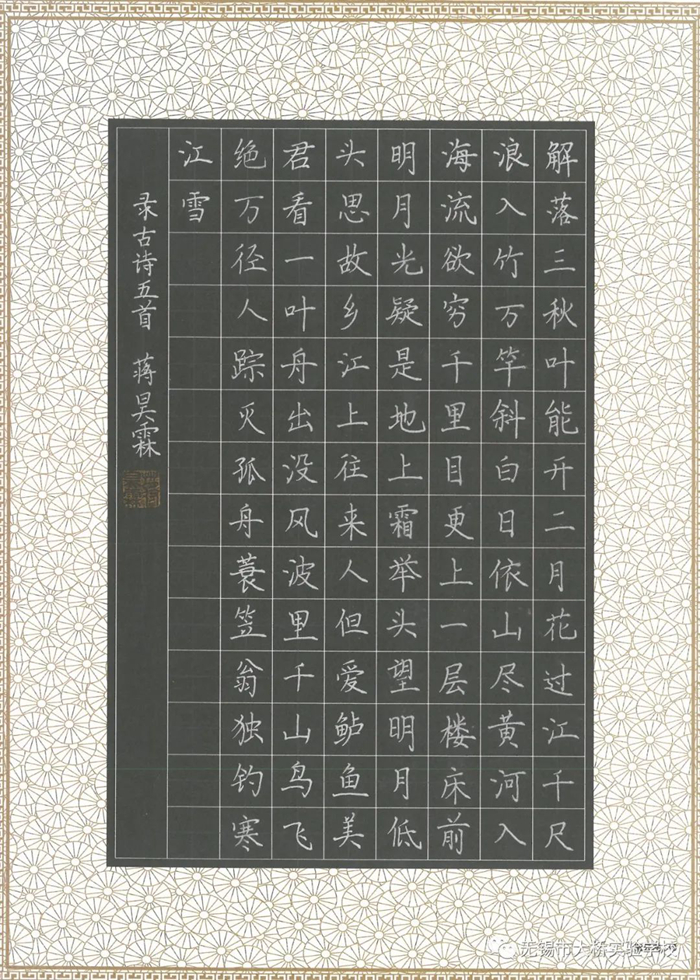 解落三秋叶能开二月花过江千尺
浪入竹万竿斜白日依山尽黄河入
海流欲穷千里目更上一层楼床前
明月光疑是地上霜举头望明月低
头思故乡江上往来人但爱鲈鱼美
君看一叶舟出没风波里千山鸟飞
绝万径人踪灭孤舟蓑笠翁独钓寒
江雪
录古诗五首 蒋昊霖
无锡市大桥实验学校